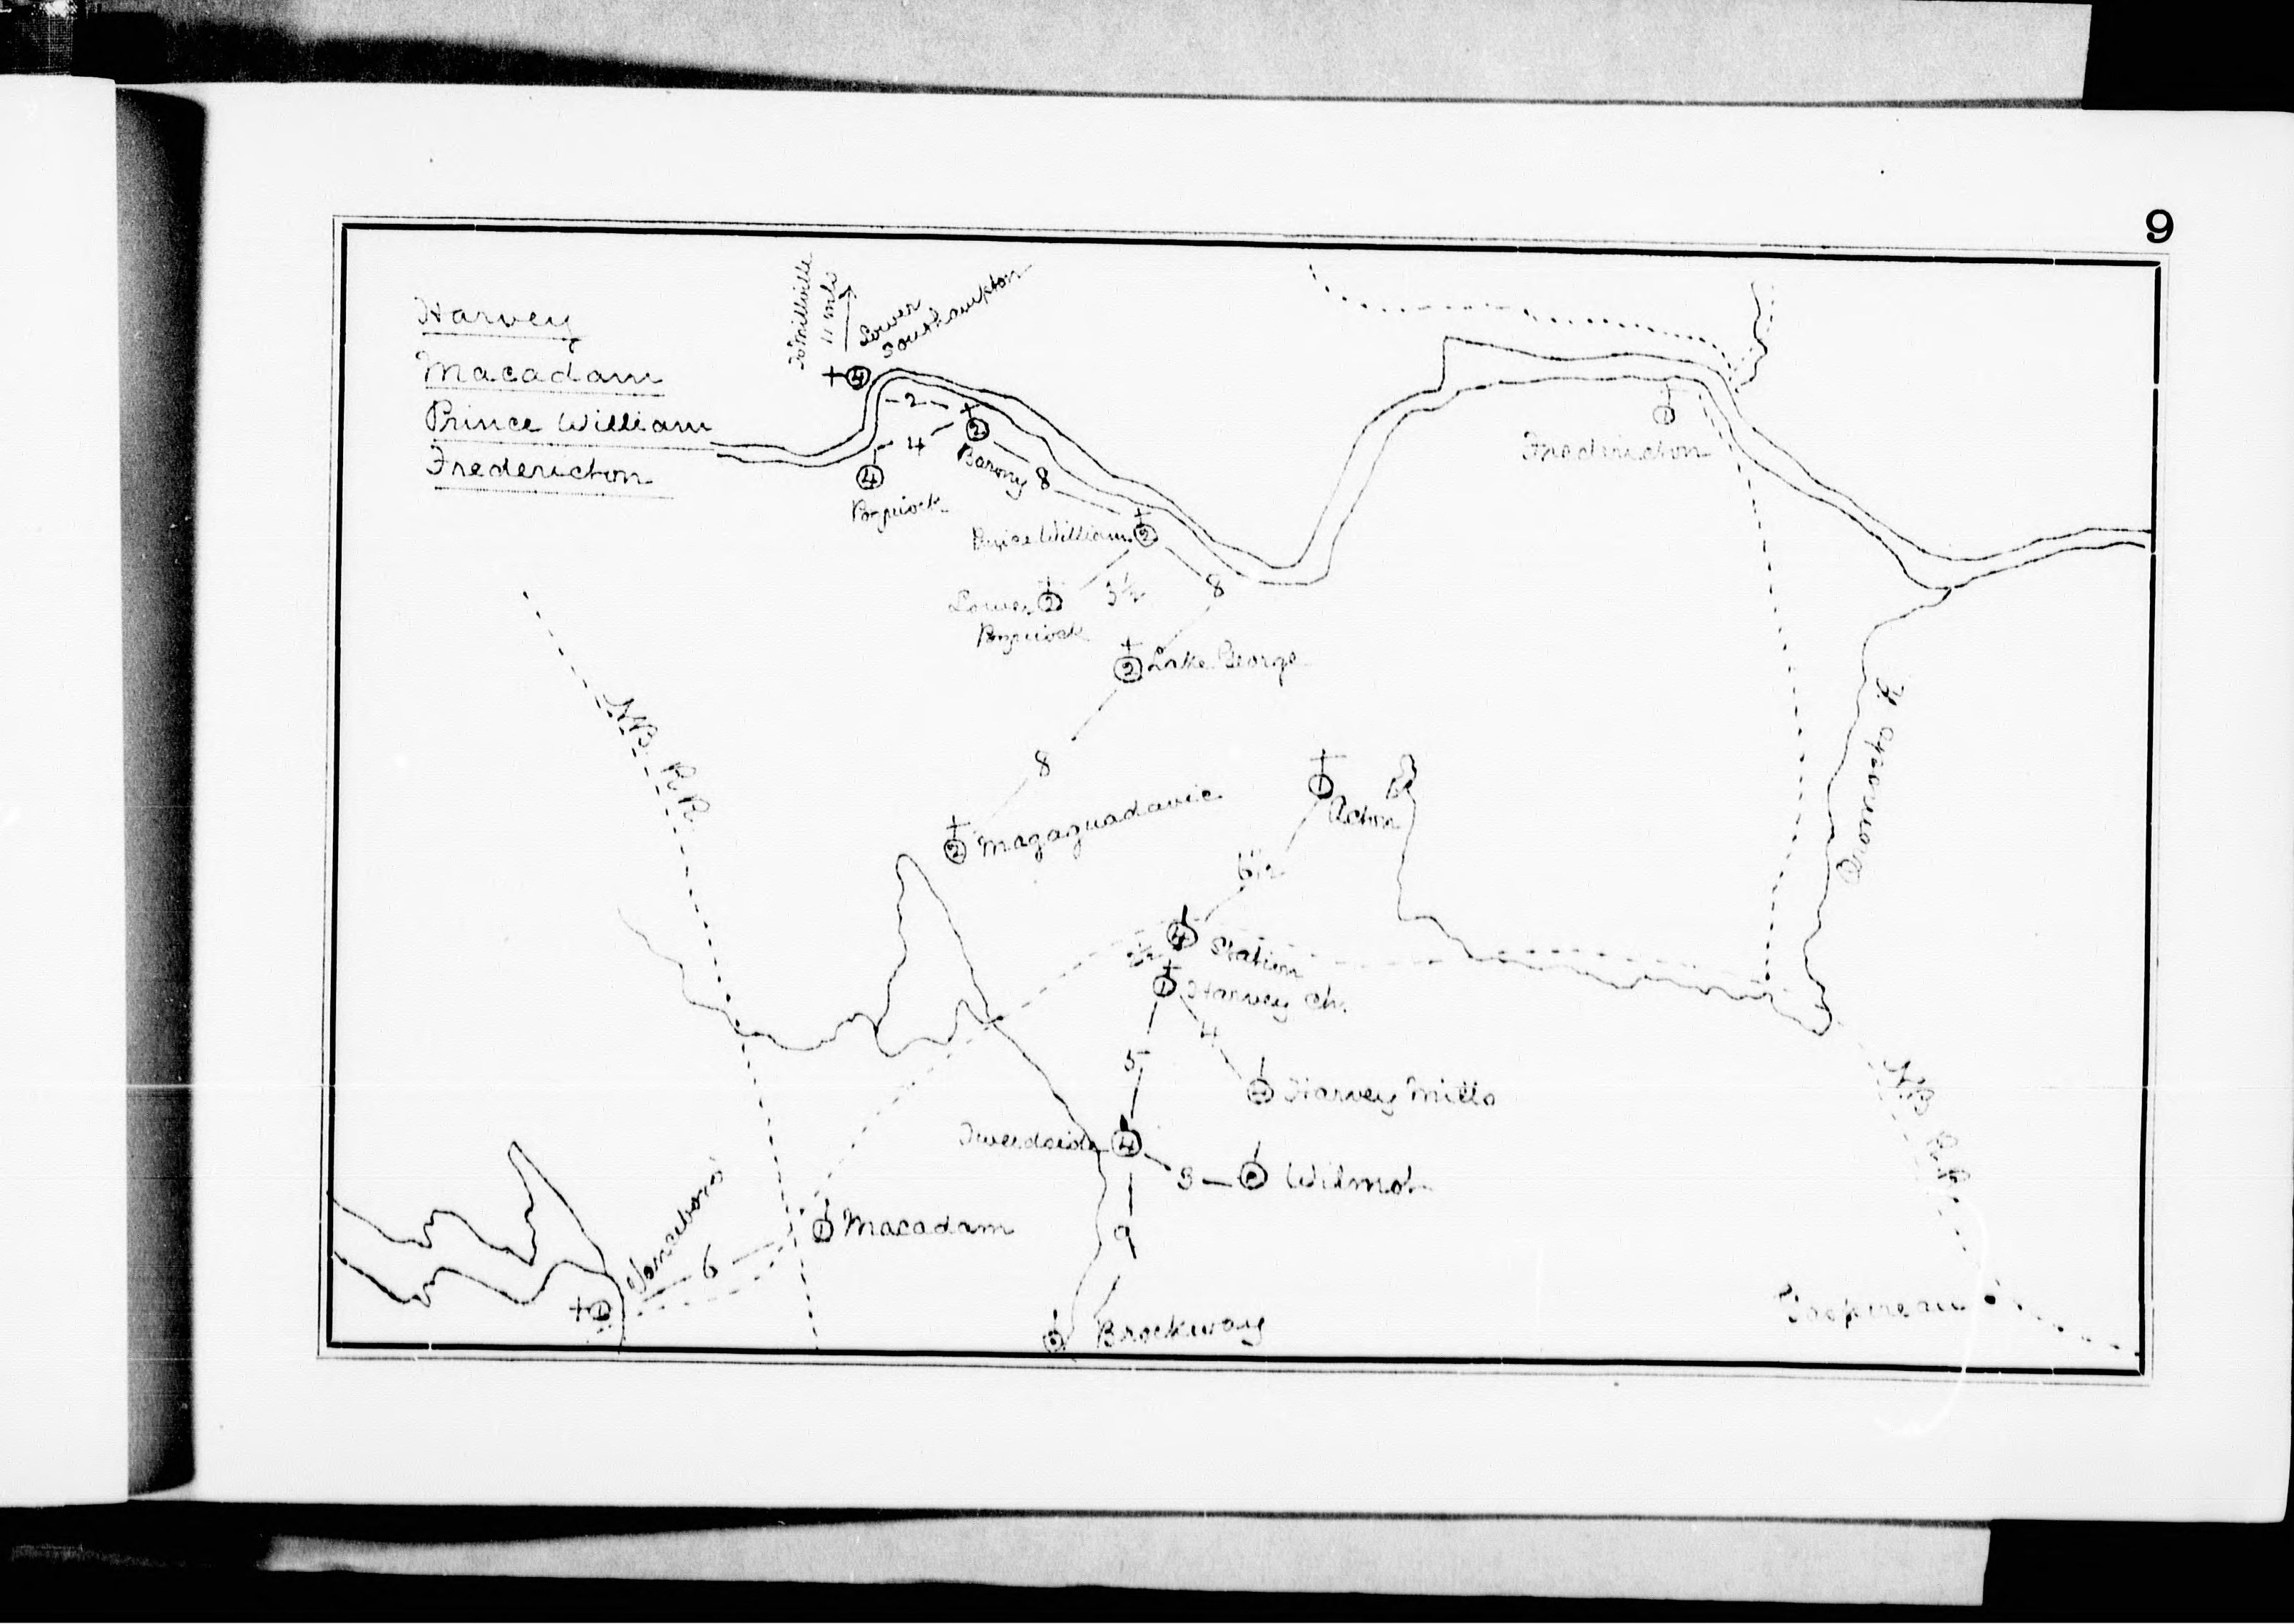 9
Harvey
Macadam
Prince William
Fredericton
To Millville
11 mls
Lower
Southampton
4
2
2
4
Barony
4
8
Poquiock
Fredericton
1
Prince William
2
Lower 2
Poquiock
3½
8
2 Lake George
8
N.B. R.R.
2 Magaguadavic
1
Acton
6½
4
Station
2½
1 Harvey Ch.
4
5
Harvey Mills
Tweedside 4
3 Wilmot
9
Oromocto R.
N.B. R.R.
Vanceboro
6
1 Macadam
1
Brockway
Gaspereau